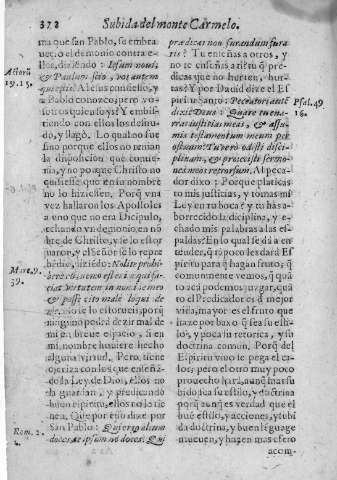 372 Subida del monte Carmelo.
ma que san Pablo, su embra
uec, o el demonio contra e-
llos, diziendo: Iesum noui,
& Paulum scio, vos autem
qui estis? A Iesus conosco, y a
Pablo conozco; pero vo-
sotros quien soys? Y embis-
tiendo con ellos los desnu-
do, y llagò. Lo qual no fue
sino porque ellos no tenian
la disposicion que conue-
nia, y no porque Christo no
quisiesse que en su nombre
no lo hiziessen. Porq̃ vna
vez hallaron los Apostoles
a vno que no era Dicipulo,
echando vn demonio, en nõ
bre de Christo, y se lo estor
uaron, y el Señor se lo repre
hẽdio, diziẽdo: Nolite prohi
bere eũ, nemo est enim qui fa-
ciat virtutem in nomine meo
& possit cito male loqui de
me, no se lo estorueis, porq̃
ninguno podrá dezir mal de
mi en breue espacio, si en
mi nombre huuiere hecho
alguna virtud. Pero tiene
ojeriza con los que enseñã-
do la Ley de Dios, ellos no
la guardan, y predicando
buen espiritu, ellos no la tie
nen. Que por esso dize por
San Pablo: Qui ergo alium
doces, te ipsum no doces. Qui
prædicas non furandum fura
ris? Tu enseñas a otros, y
no te enseñas a ti? tu q̃ pre-
dicas que no hurten, hur-
tas? Y por Dauid dize el Es
piritu Santo: Peccatori autẽ
dixit Deus: Quare tu ena-
rras iustitias meas, & assu-
mis testamentum meum per
os tuum? Tu verò odisti disci-
plinam, & proiecisti sermo-
nes meos retrorsum. Al peca-
dor dixo: Porque platicas
tu mis justicias, y tomas mi
Ley en tu boca? y tu has a-
borrecido la diciplina, y e-
chado mis palabras a las es-
paldas? En lo qual se dá a en
tender, q̃ tãpoco les dará Es
piritu para q̃ hagan fruto, q̃
comunmente vemos, q̃ quã
to acá podemos juzgar, quã
to el Predicador es d̃ mejor
vida, mayor es el fruto que
haze por baxo q̃ sea su esti-
lo, y poca su retorica, y su
dotrina comun. Porq̃ del
Espiritu viuo se pega el ca-
lor; pero el otro muy poco
prouecho hará, aunq̃ mas su
bido sea su estilo, y doctrina
porq̃ aunq̃ es verdad que el
buẽ estilo, y acciones, y subi
da dotrina, y buen lẽguage
mueuen, y hazen mas efeto
acom-
Actorũ
19. 15.
Marc. 9.
39.
Rom. 2.
Psal. 49.
16.